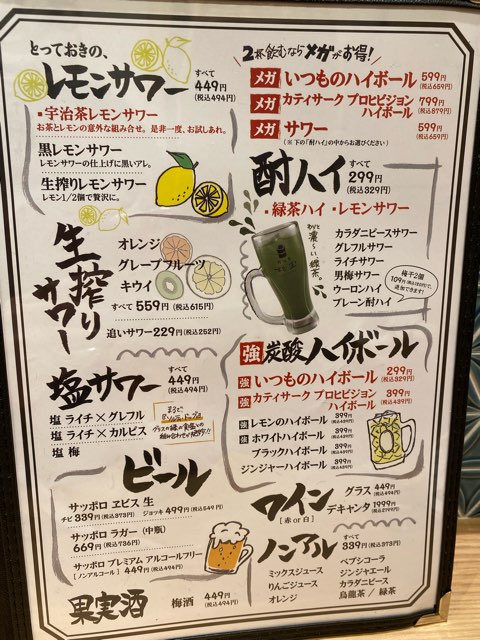 とっておきの、
レモンサワー すべて 449円 (税込494円)
・宇治茶レモンサワー
お茶とレモンの意外な組み合せ。是非一度、お試しあれ。
黒レモンサワー
レモンサワーの仕上げに黒いアレ。
生搾りレモンサワー
レモン1/2個で贅沢に。
生搾りサワー
オレンジ
グレープフルーツ
キウイ
すべて 559円 (税込615円)
追いサワー 229円 (税込252円)
塩サワー すべて 449円 (税込494円)
塩 ライチ×グレフル
塩 ライチ×カルピス
塩 梅
2杯飲むならメガがお得!
メガ いつものハイボール 599円 (税込659円)
メガ カティサーク プロヒビジョン ハイボール 799円 (税込879円)
メガ サワー 599円 (税込659円)
(※下の「酎ハイ」の中からお選びください)
酎ハイ すべて 299円 (税込329円)
・緑茶ハイ ・レモンサワー
わりと濃〜い緑茶。
カラダニピースサワー
グレフルサワー
ライチサワー
男梅サワー
ウーロンハイ
プレーン酎ハイ
梅干2個 109円(税込120円)で、追加できます!
強炭酸ハイボール
強 いつものハイボール 299円 (税込329円)
強 カティサーク プロヒビジョン ハイボール 399円 (税込439円)
強 レモンのハイボール 399円 (税込439円)
強 ホワイトハイボール 399円 (税込439円)
ブラックハイボール 399円 (税込439円)
ジンジャーハイボール 399円 (税込439円)
ビール
サッポロ ヱビス 生
チビ 339円 (税込373円) ジョッキ 499円 (税込549円)
サッポロ ラガー (中瓶)
669円 (税込736円)
サッポロ プレミアム アルコールフリー
[ノンアルコール] 449円 (税込494円)
果実酒 梅酒 449円 (税込494円)
ワイン [赤or白]
グラス 449円 (税込494円)
デキャンタ 1999円
ノンアル すべて 339円 (税込373円)
ミックスジュース
りんごジュース
オレンジ
ペプシコーラ
ジンジャエール
カラダニピース
烏龍茶 / 緑茶